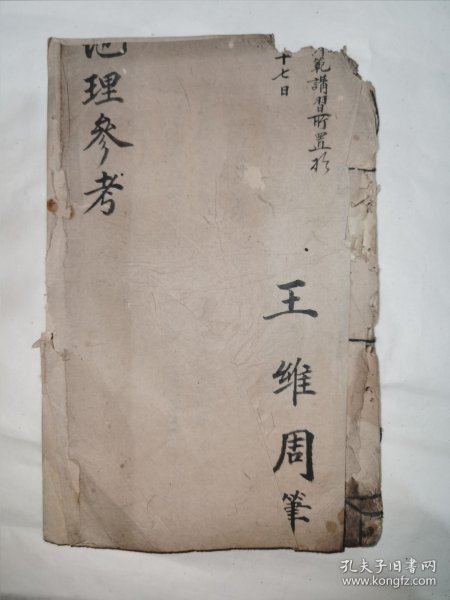 範講習所置於
十七日
王維周筆
地理參考
孔夫子旧书网
www.kongfz.com